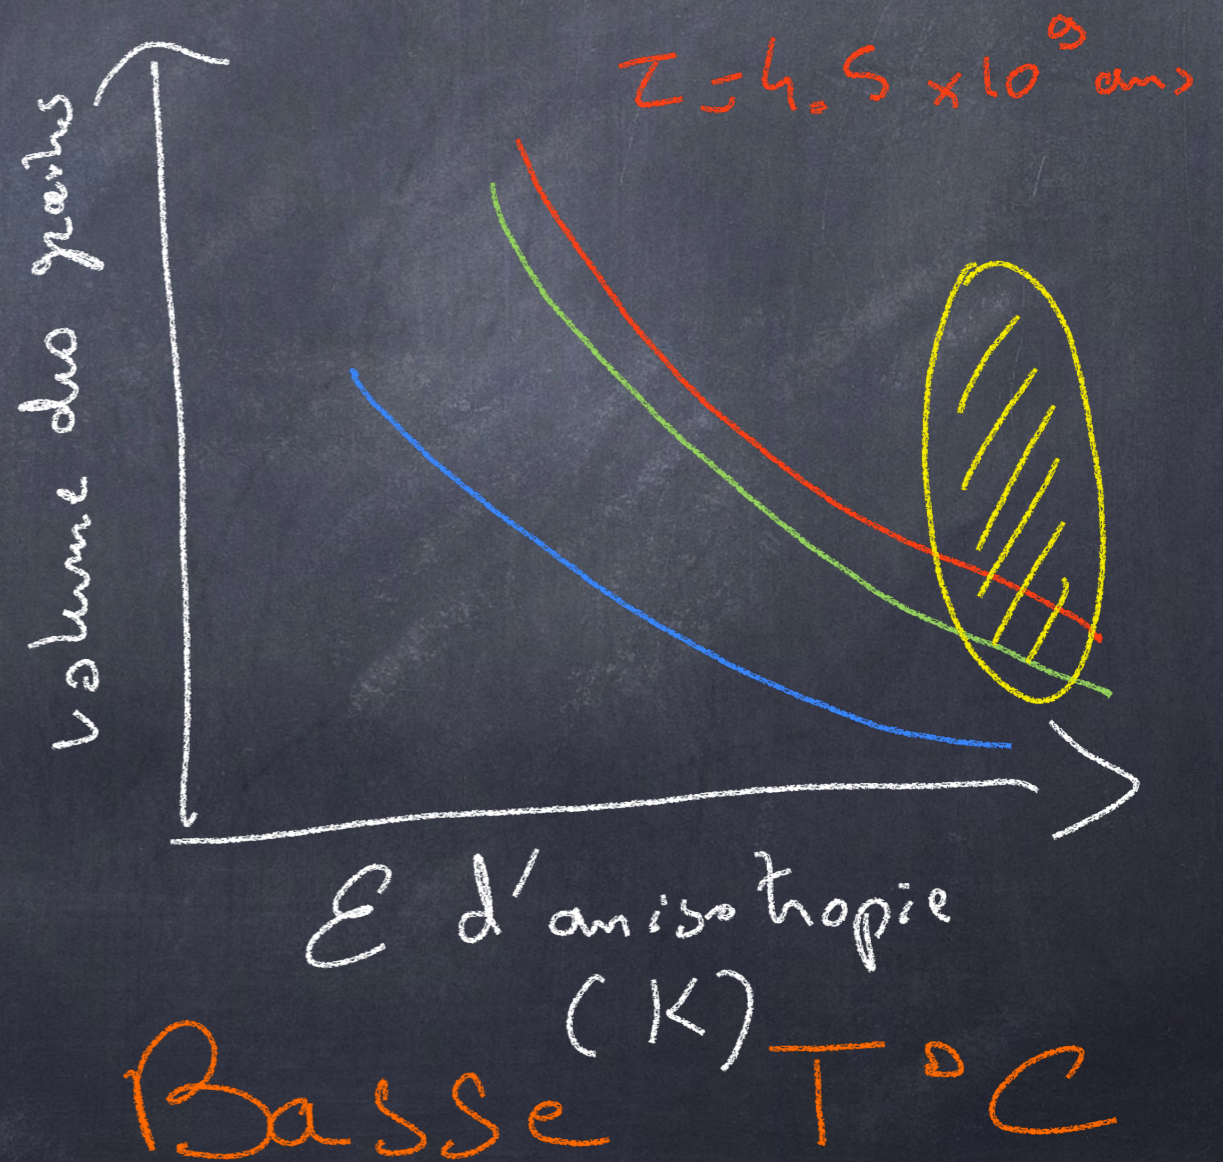 τ = 4.5 × 10⁹ ans
volume des grains
E d'anisotropie
(K)
Basse T°C